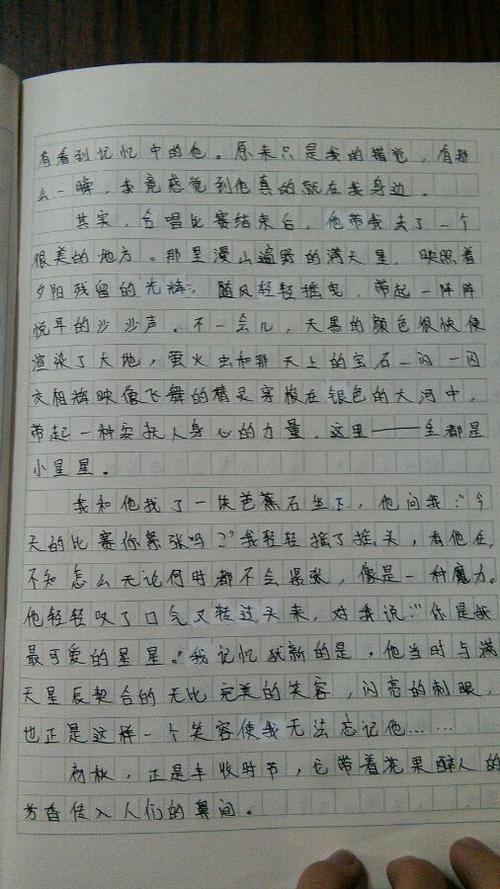 有看到记忆中的他。原来只是我的错觉，有那
么一瞬，我竟感觉到他真的就在我身边。
其实，合唱比赛结束后，他带我去了一个
很美的地方。那里漫山遍野的满天星，映照着
夕阳残留的光辉，随风轻轻摇曳，带起一阵阵
悦耳的沙沙声。不一会儿，天黑的颜色很快便
渲染了大地，萤火虫和那天上的宝石一闪一闪
交相辉映像飞舞的精灵穿梭在银色的大河中，
带起一种安抚人身心的力量。这里——全都是
小星星。
我和他找了一块芭蕉石坐下，他问我：“今
天的比赛你紧张吗？”我轻轻摇了摇头，有他在，
不知怎么无论何时都不会紧张，像是一种魔力。
他轻轻叹了口气又转过头来，对我说：“你是我
最可爱的星星。”我记忆犹新的是，他当时与满
天星辰契合的无比完美的笑容，闪亮的刺眼，
也正是这样一个笑容使我无法忘记他……
初秋，正是丰收时节，它带着花果醉人的
芳香传入人们的鼻间。